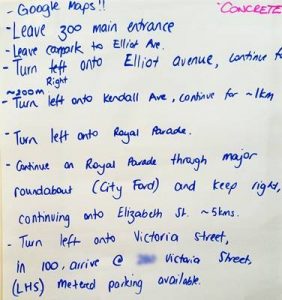 - Google Maps!!
- CONCRETE
- Leave 300 main entrance
- Leave carpark to Elliot Ave.
- Turn left onto Elliot avenue, continue for
Right
~200m
- Turn left onto Kendall Ave, continue for ~1km
- Turn left onto Royal Parade.
- Continue on Royal Parade through major
roundabout (City Ford) and keep right,
continuing onto Elizabeth St. ~5kms.
- Turn left onto Victoria Street,
in 100, arrive @ Victoria Street,
(LHS) metered parking available.